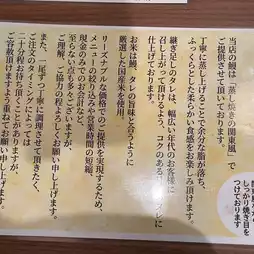 当店の鰻は「蒸し焼きの関東風」で
ご提供させて頂いております。
丁寧に蒸し上げることで余分な脂が落ち、
ふっくらとした柔らかい食感をお楽しみ頂けます。
継ぎ足しのタレは、幅広い年代のお客様に
召し上がって頂けるよう、コクのある
仕上げております。
お米は鰻、タレの旨味と合うように
厳選した国産米を使用。
リーズナブルな価格でのご提供を実現するため、
メニューの絞り込みや営業時間の短縮、
現金のみでのお会計など、
至らない点も多々ございますが、
ご理解、ご協力の程よろしくお願い申し上げます。
また、一尾ずつ丁寧に調理させて頂きたく、
ご注文のタイミングによっては
二十分程お待ち頂くことがありますが、
ご容赦頂けますよう重ねてお願い申し上げます。
しっかり焼き目を
つけております